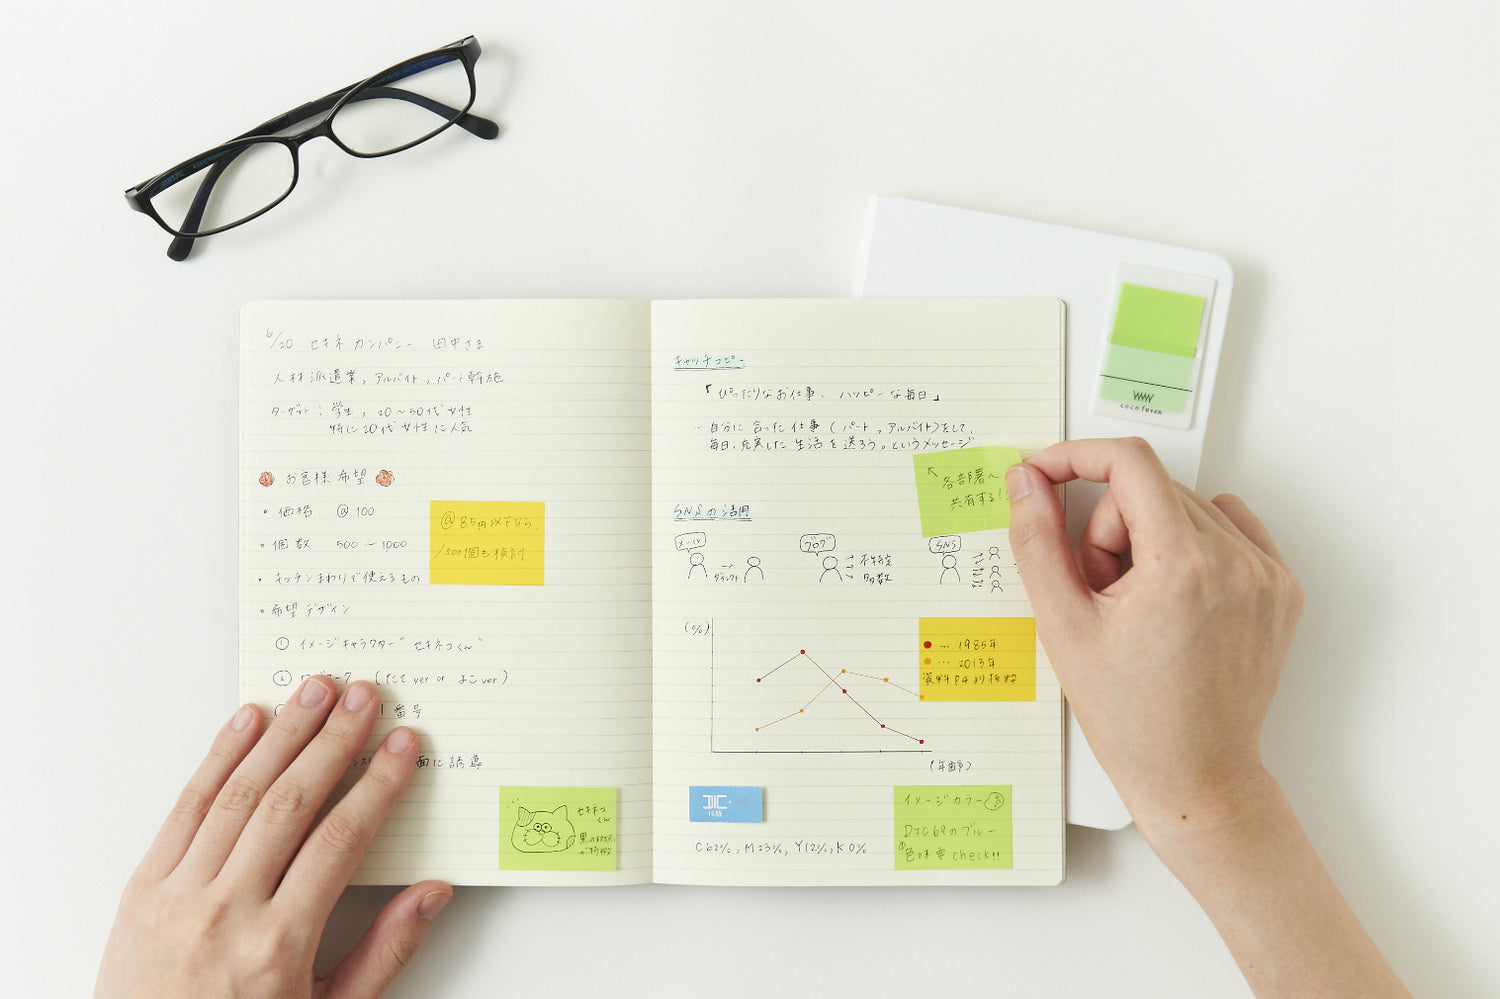 6/20 セキネカンパニー 田中さま
人材派遣業, アルバイト, パート斡旋
ターゲット: 学生, 20〜50代女性
特に20代女性に人気
お客様希望
・価格 @100
・個数 500〜1000
・キッチンまわりで使えるもの
・希望デザイン
① イメージキャラクター"セキネコくん"
② (たてver or よこver)
番号
面に誘導
@85円以下なら、
1500個も検討
セキネコ
くん
キャッチコピー
「ぴったりなお仕事、ハッピーな毎日」
…自分に合った仕事(パート,アルバイト)をして、
毎日、充実した生活を送ろう。というメッセージ
各部署へ
共有する!
SNSの活用
メール
ダイレクト
ブログ
不特定
多数
SNS
(%)
● … 1985年
● … 2013年
資料P4より抜粋
(年齢)
DIC
C62%, M23%, Y12%, K0%
イメージカラー
DIC69のブルー
色味要check!!
coco fusen